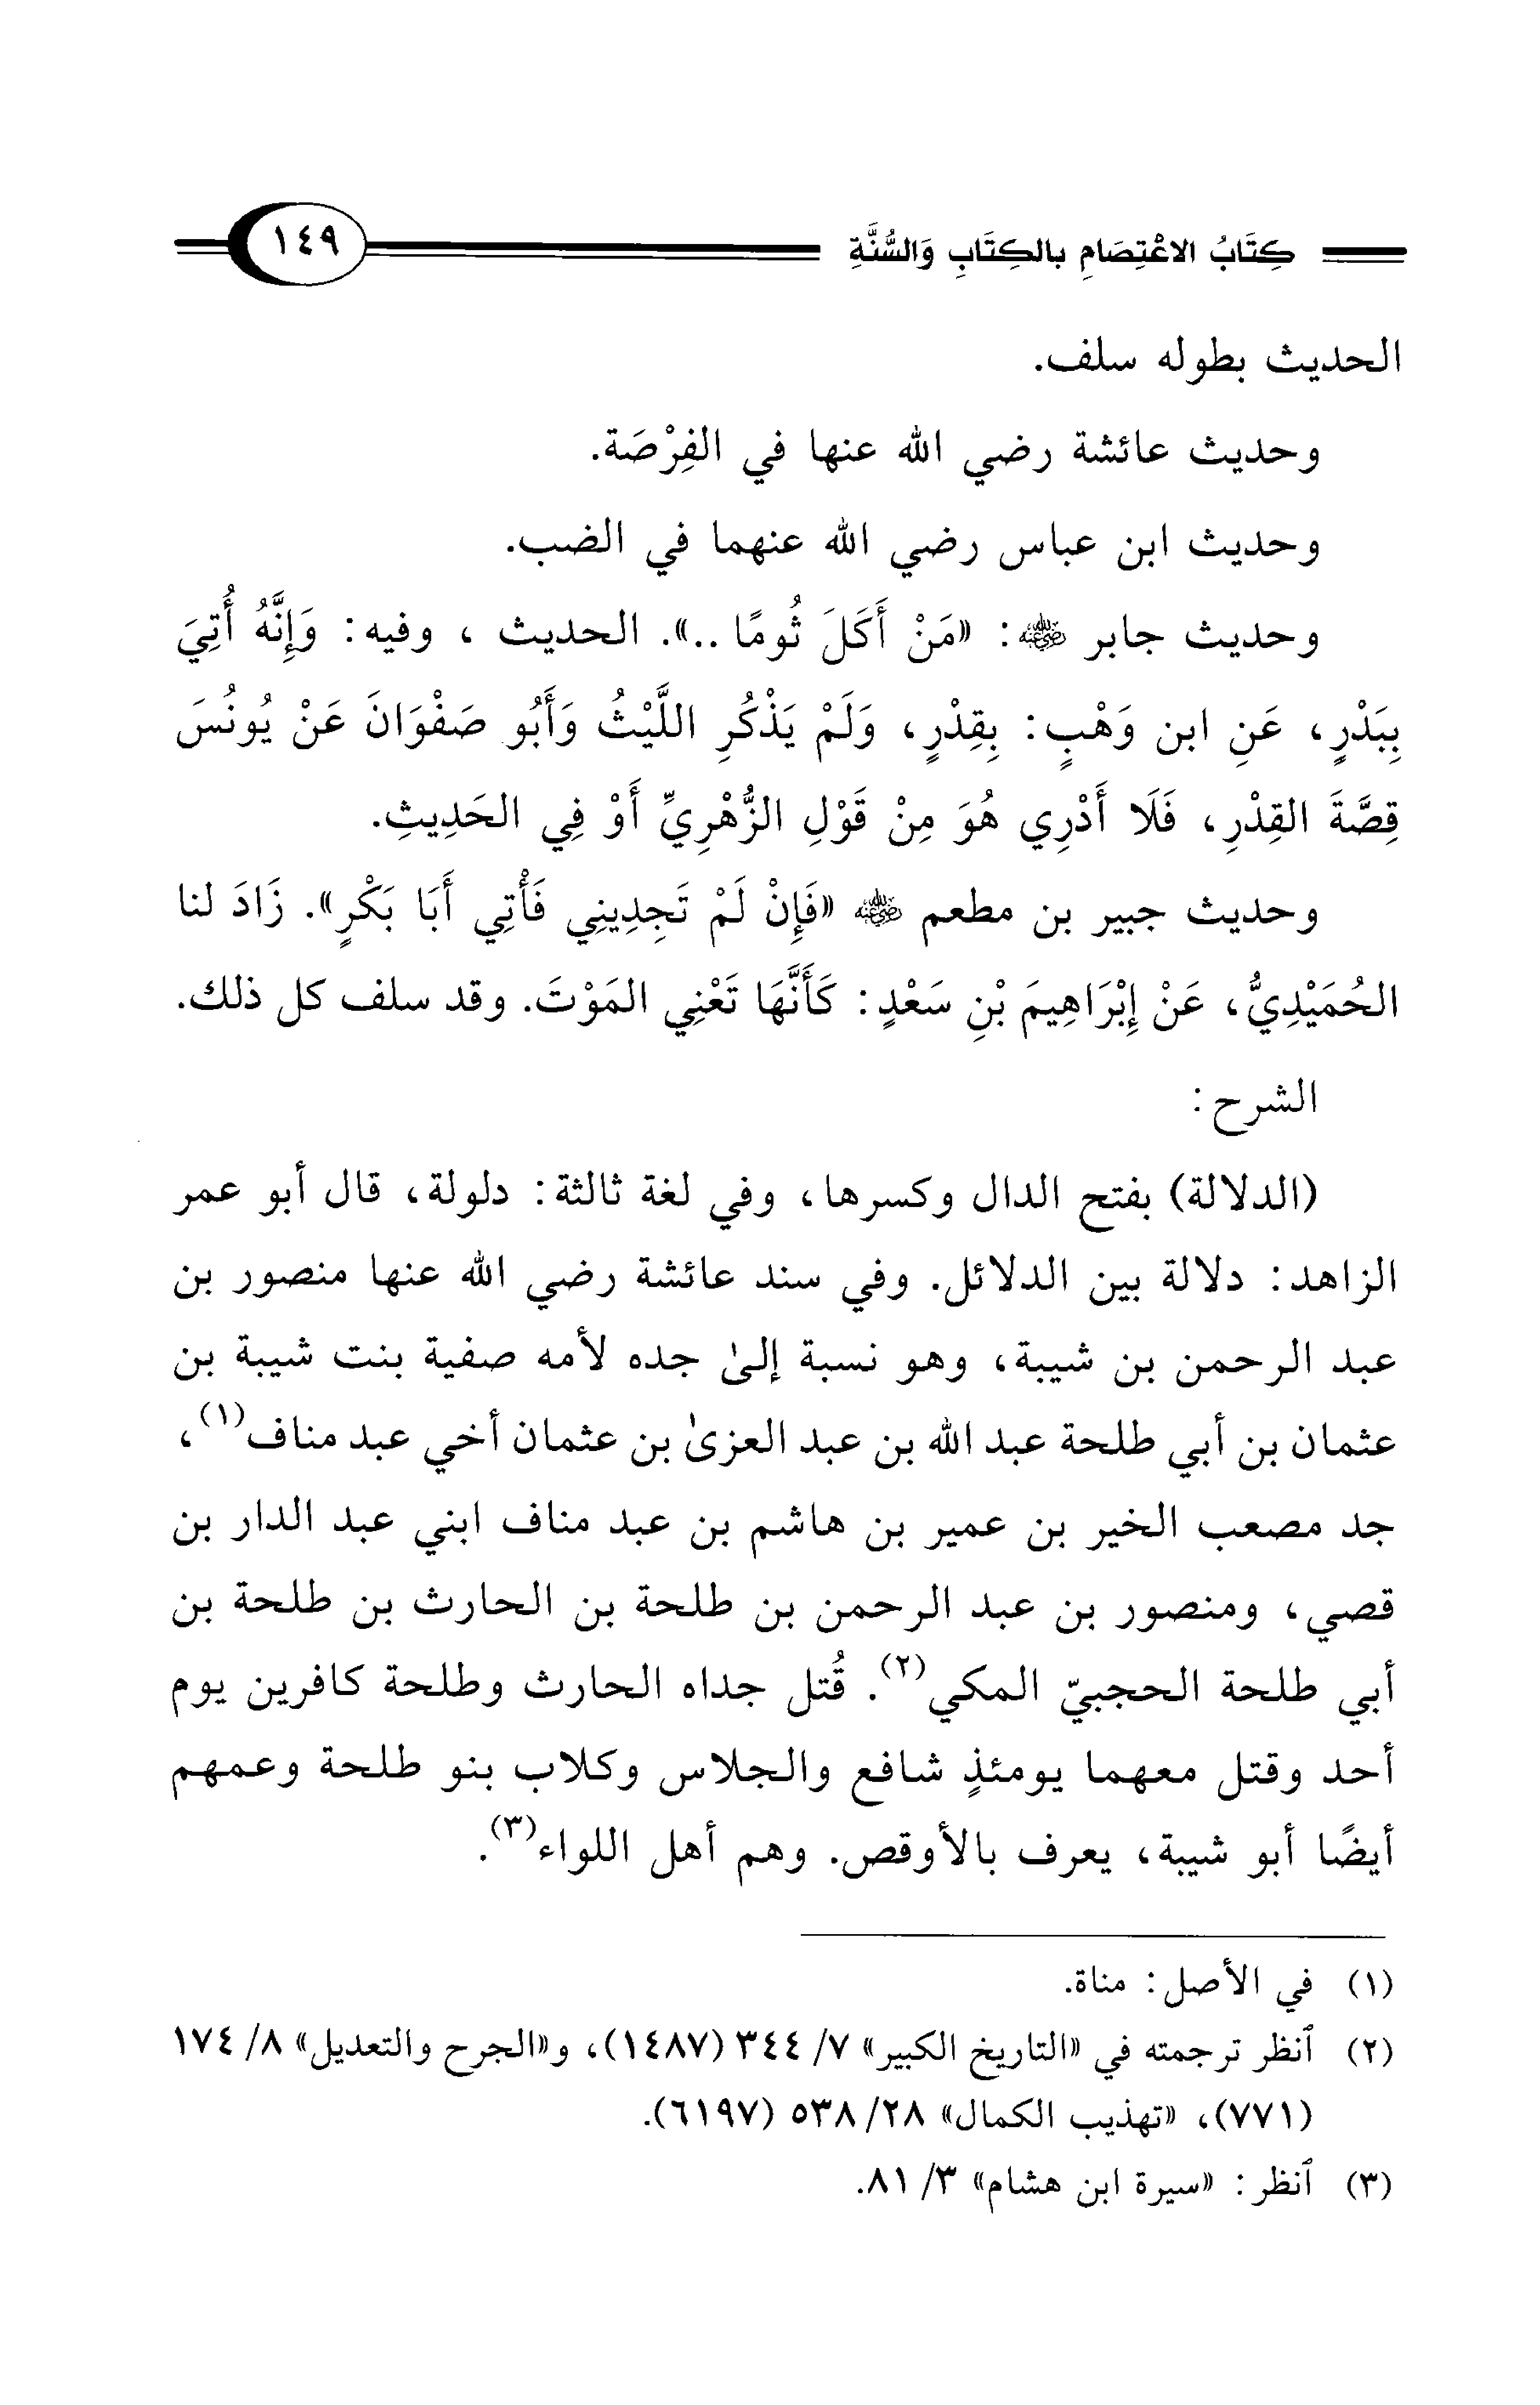 كِتَابُ الاعْتِصَامِ بالكِتَابِ وَالسُّنَّةِ ١٤٩
الحديث بطوله سلف.
وحديث عائشة رضي الله عنها في الفِرْصَة.
وحديث ابن عباس رضي الله عنهما في الضب.
وحديث جابر رضي الله عنه: «مَنْ أَكَلَ ثُومًا ..». الحديث ، وفيه: وَإِنَّهُ أُتِيَ
بِبَدْرٍ، عَنِ ابن وَهْبٍ: بِقِدْرٍ، وَلَمْ يَذْكُرِ اللَّيْثُ وَأَبُو صَفْوَانَ عَنْ يُونُسَ
قِصَّةَ القِدْرِ، فَلَا أَدْرِي هُوَ مِنْ قَوْلِ الزُّهْرِيِّ أَوْ فِي الحَدِيثِ.
وحديث جبير بن مطعم رضي الله عنه «فَإِنْ لَمْ تَجِدِينِي فَأْتِي أَبَا بَكْرٍ». زَادَ لنا
الحُمَيْدِيُّ، عَنْ إِبْرَاهِيمَ بْنِ سَعْدٍ: كَأَنَّهَا تَعْنِي المَوْتَ. وقد سلف كل ذلك.
الشرح:
(الدلالة) بفتح الدال وكسرها، وفي لغة ثالثة: دلولة، قال أبو عمر
الزاهد: دلالة بين الدلائل. وفي سند عائشة رضي الله عنها منصور بن
عبد الرحمن بن شيبة، وهو نسبة إلىٰ جده لأمه صفية بنت شيبة بن
عثمان بن أبي طلحة عبد الله بن عبد العزىٰ بن عثمان أخي عبد مناف(١)،
جد مصعب الخير بن عمير بن هاشم بن عبد مناف ابني عبد الدار بن
قصي، ومنصور بن عبد الرحمن بن طلحة بن الحارث بن طلحة بن
أبي طلحة الحجبيّ المكي(٢). قُتل جداه الحارث وطلحة كافرين يوم
أحد وقتل معهما يومئذٍ شافع والجلاس وكلاب بنو طلحة وعمهم
أيضًا أبو شيبة، يعرف بالأوقص. وهم أهل اللواء(٣).
(١) في الأصل: مناة.
(٢) ٱنظر ترجمته في «التاريخ الكبير» ٧/ ٣٤٤ (١٤٨٧)، و«الجرح والتعديل» ٨/ ١٧٤
(٧٧١)، «تهذيب الكمال» ٢٨/ ٥٣٨ (٦١٩٧).
(٣) ٱنظر: «سيرة ابن هشام» ٣/ ٨١.